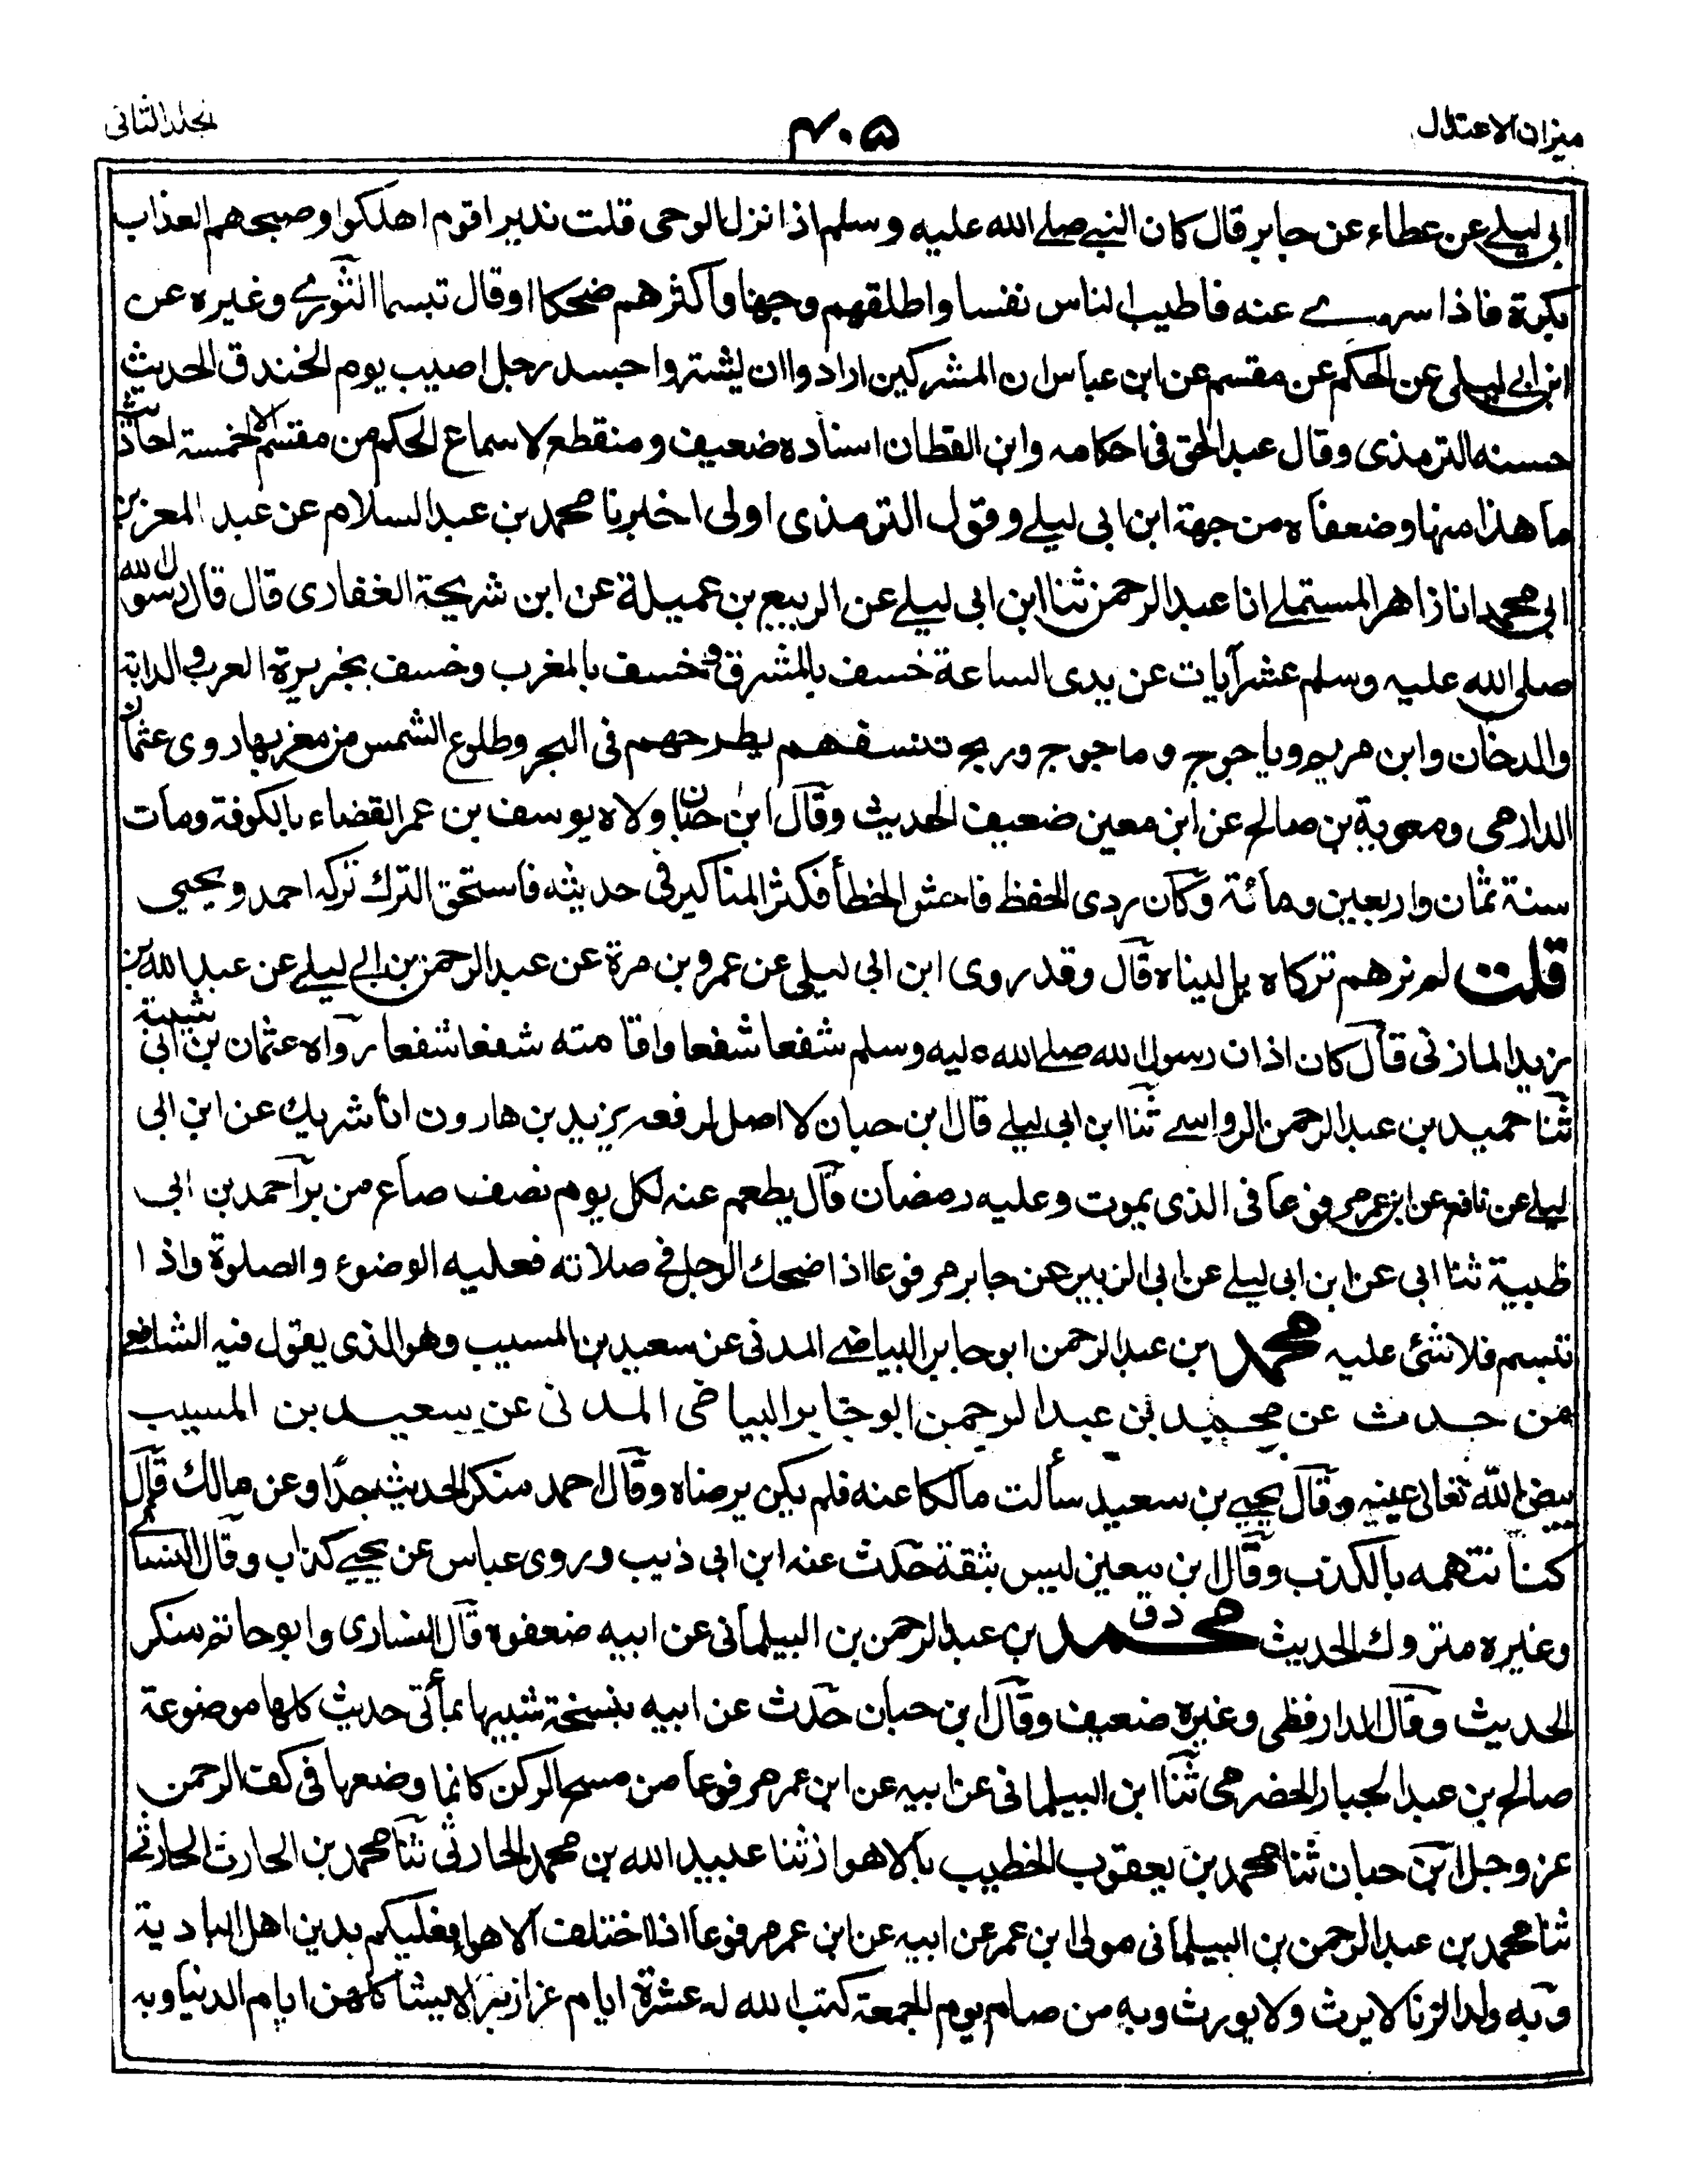 ميزان الاعتدال
٤٠٥
مجلد الثانى
ابى ليلے عن عطاء عن جابر قال كان النبے صلے الله عليه وسلم اذا نزل الوحى قلت نذير اقوم اهلكوا وصبحهم العذاب
بكرة فاذا سرے عنه فاطيب الناس نفسا واطلقهم وجها واكثرهم ضحكا او قال تبسما الثورے وغيره عن
ابن ابے ليلى عن الحكم عن مقسم عن ابن عباس ان المشركين ارادوا ان يشتروا جسد رجل اصيب يوم الخندق الحديث
حسنه الترمذى وقال عبد الحق فى احكامه وابن القطان اسناده ضعيف ومنقطع لا سماع الحكم من مقسم الا لخمسة احاديث
ما هذا منها وضعفاه من جهة ابن ابى ليلے وقول الترمذى اولى اخبرنا محمد بن عبد السلام عن عبد المعز بن
ابى محمد انا زاهر المستملے انا عبد الرحمن ثنا ابن ابى ليلے عن الربيع بن عميلة عن ابن شريحة الغفارى قال قال رسول الله
صلى الله عليه وسلم عشر آيات عن يدى الساعة خسف بالمشرق وخسف بالمغرب وخسف بجزيرة العرب والدابة
والدخان وابن مريم وياجوج وماجوج وريح تنسفهم يطرحهم فى البحر وطلوع الشمس من مغربها روى عثمان
الدارمى ومعوية بن صالح عن ابن معين ضعيف الحديث وقال ابن حبان ولاه يوسف بن عمر القضاء بالكوفة ومات
سنة ثمان واربعين ومائة وكان ردى الحفظ فاحش الخطأ فكثر المناكير فى حديثه فاستحق الترك تركه احمد ويحيى
قلت لم نرهم تركاه بل ليناه قال وقد روى ابن ابى ليلى عن عمرو بن مرة عن عبد الرحمن بن ابے ليلے عن عبد الله بن
يزيد المازنى قال كان اذان رسول الله صلے الله عليه وسلم شفعا شفعا واقامته شفعا شفعا رواه عثمان بن ابى شيبة
ثنا حميد بن عبد الرحمن الرواسے ثنا ابن ابى ليلے قال ابن حبان لا اصل لرفعه يزيد بن هارون انا شريك عن ابن ابى
ليلے عن نافع عن ابن عمر مرفوعا فى الذى يموت وعليه رمضان قال يطعم عنه لكل يوم نصف صاع من بر احمد بن ابى
ظبية ثنا ابى عن ابن ابى ليلے عن ابى الزبير عن جابر مرفوعا اذا ضحك الرجل فے صلاته فعليه الوضوء والصلوة واذا
تبسم فلا شئ عليه محمد بن عبد الرحمن ابو جابر البياضے المدنى عن سعيد بن المسيب وهو الذى يقول فيه الشافعے
من حدث عن محمد بن عبد الرحمن ابو جابر البياضى المدنى عن سعيد بن المسيب
بيض الله تعالى عينيه وقال يحيے بن سعيد سألت مالكا عنه فلم يكن يرضاه وقال احمد منكر الحديث جدا وعن مالك قال
كنا نتهمه بالكذب وقال ابن معين ليس بثقة حدث عنه ابن ابى ذيب وروى عباس عن يحيے كذاب وقال النسائے
وغيره متروك الحديث محمد دق بن عبد الرحمن بن البيلمانى عن ابيه ضعفوه قال البخارى وابو حاتم منكر
الحديث وقال الدارقطنى وغيره ضعيف وقال ابن حبان حدث عن ابيه بنسخة شبيها بمأتى حديث كلها موضوعة
صالح بن عبد الجبار الحضرمى ثنا ابن البيلمانى عن ابيه عن ابن عمر مرفوعا من مسح الركن كانما وضعها فى كف الرحمن
عز وجل ابن حبان ثنا محمد بن يعقوب الخطيب بالاهواز ثنا عبيد الله بن محمد الحارثى ثنا محمد بن الحارث الحارثے
ثنا محمد بن عبد الرحمن بن البيلمانى مولى ابن عمر عن ابيه عن ابن عمر مرفوعا اذا اختلف الاهواء فعليكم بدين اهل البادية
وبه ولد الزنا لا يرث ولا يورث وبه من صام يوم الجمعة كتب الله له عشرة ايام لا كلهن ايام الدنيا وبه